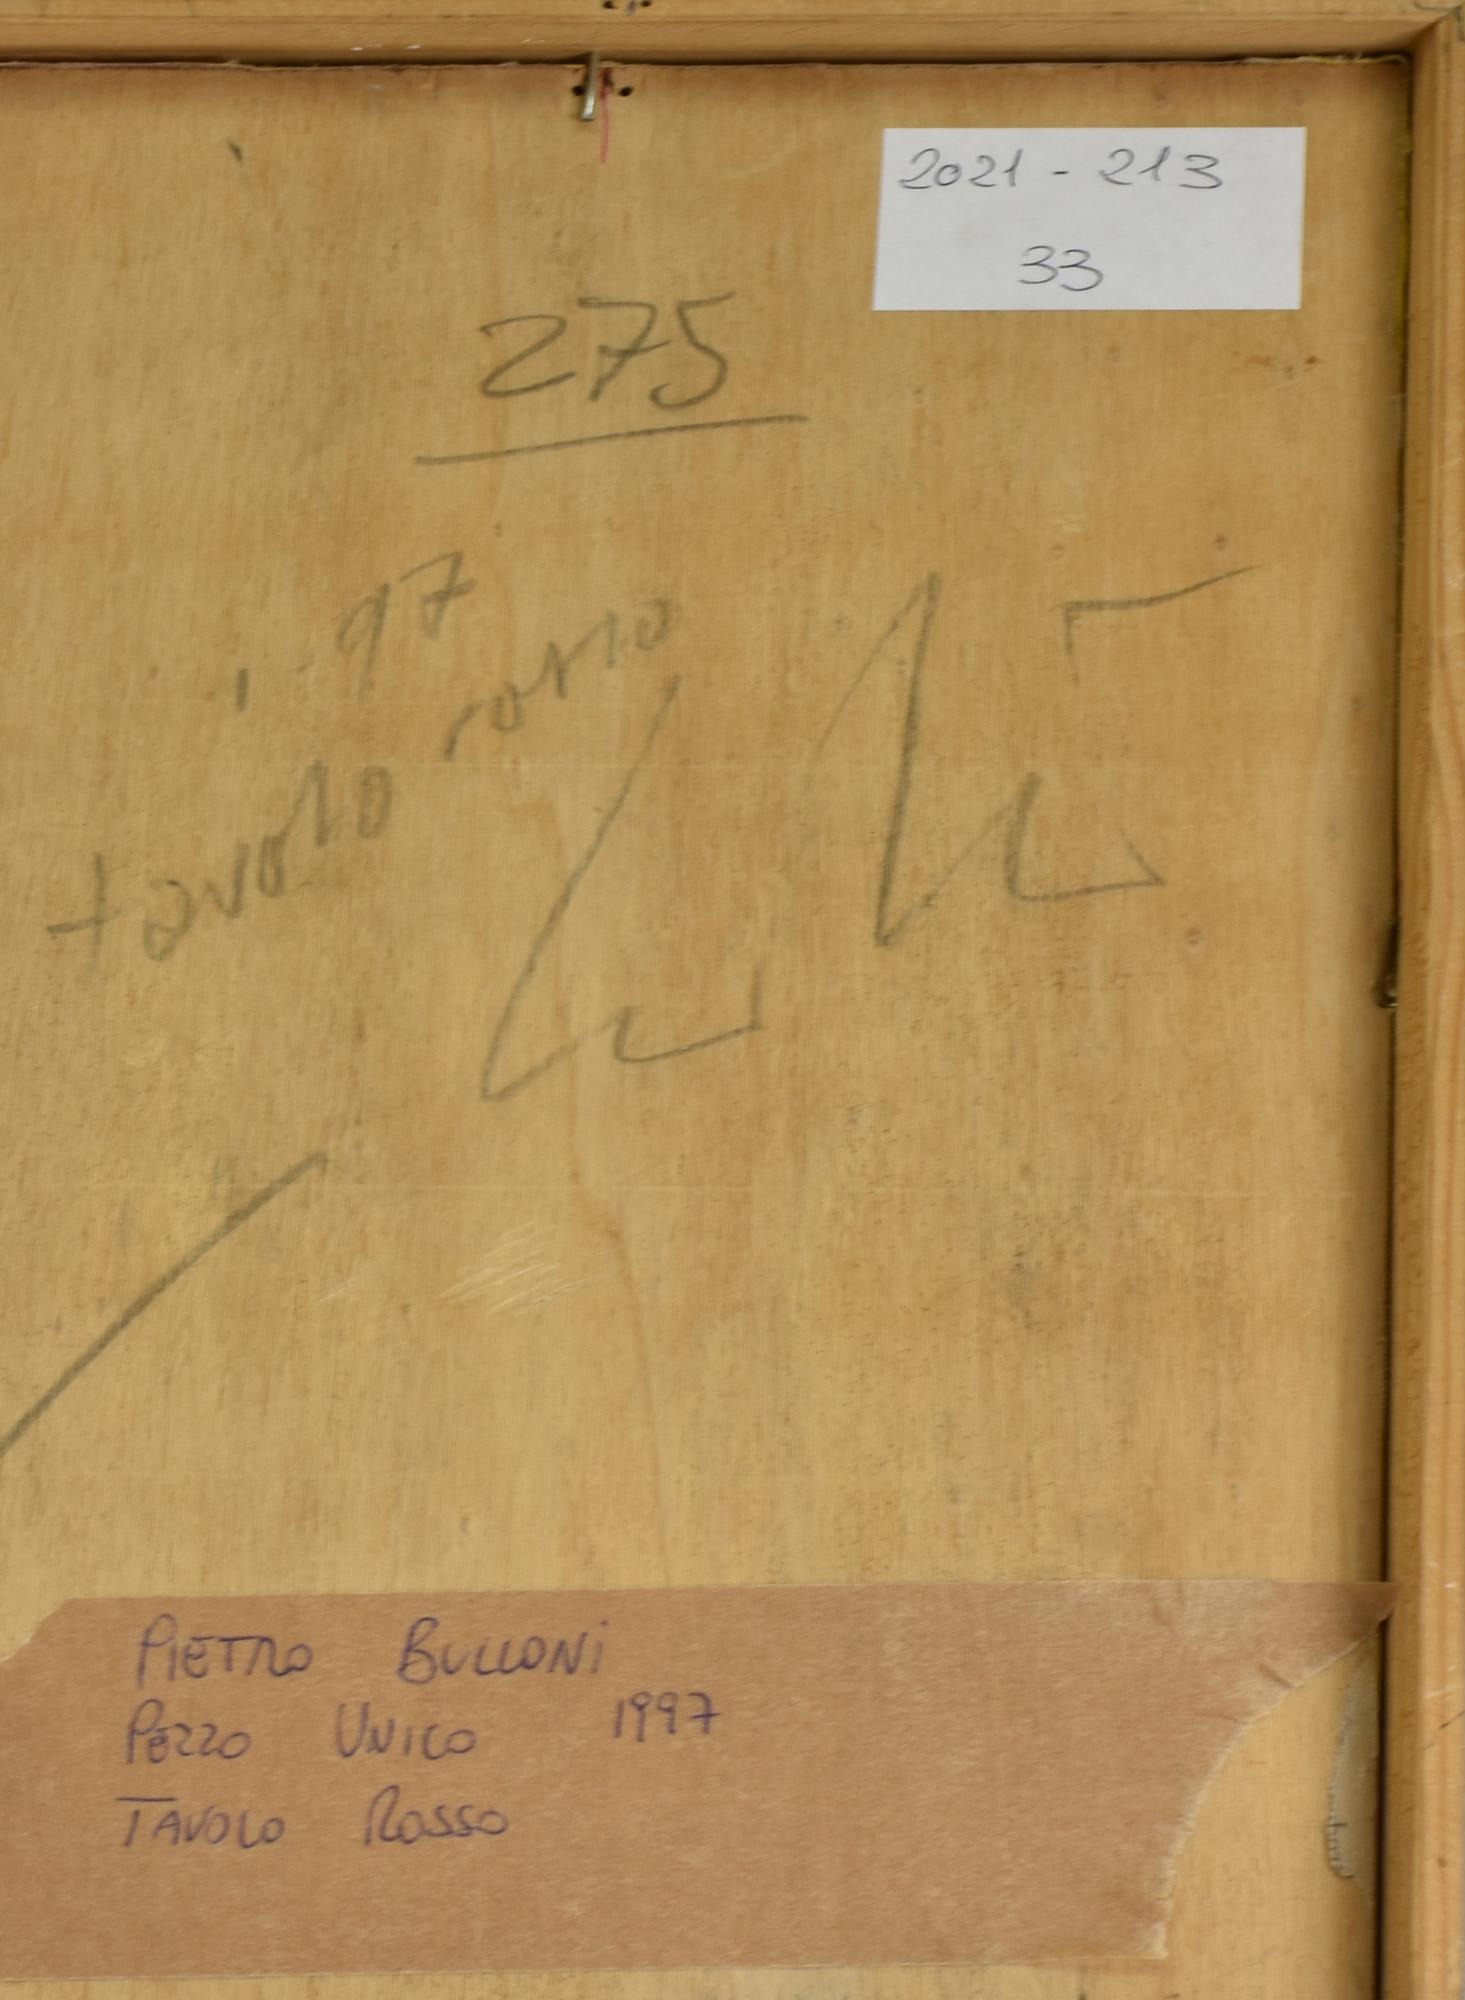 2021 - 213
33
275
97
tavolo rosso
PIETRO BULLONI
PEZZO UNICO 1997
TAVOLO ROSSO